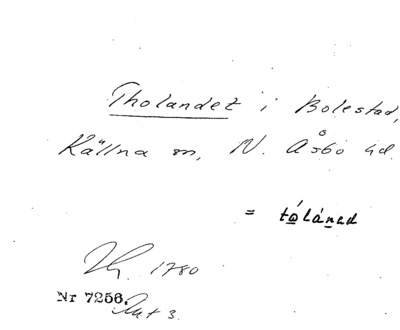 Tholandet i Bolestad,
Källna sn, N. Åsbo hd.
= tólánad
1780
Nr 7256. Akt 3.